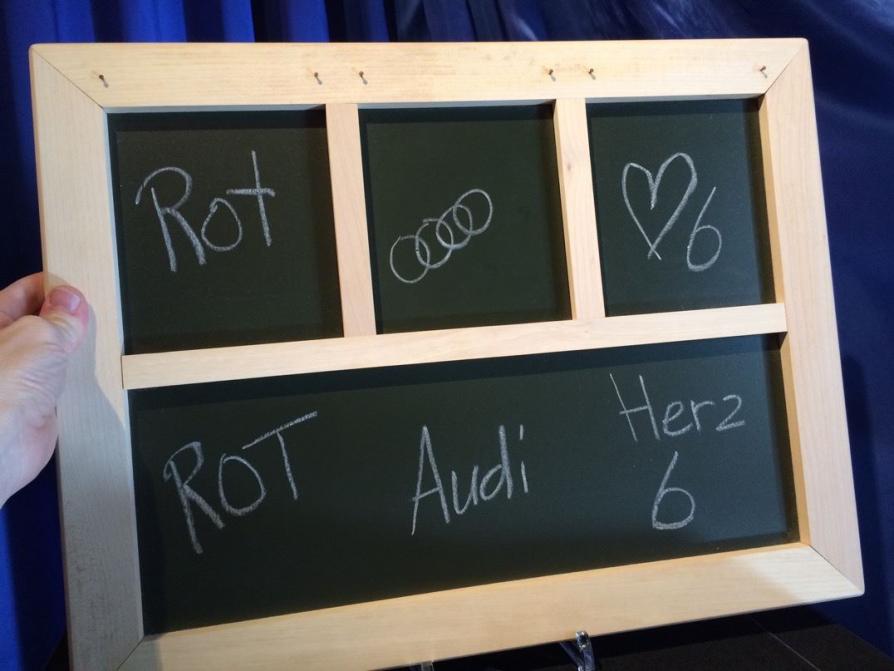 Rot
6
ROT Audi Herz
6